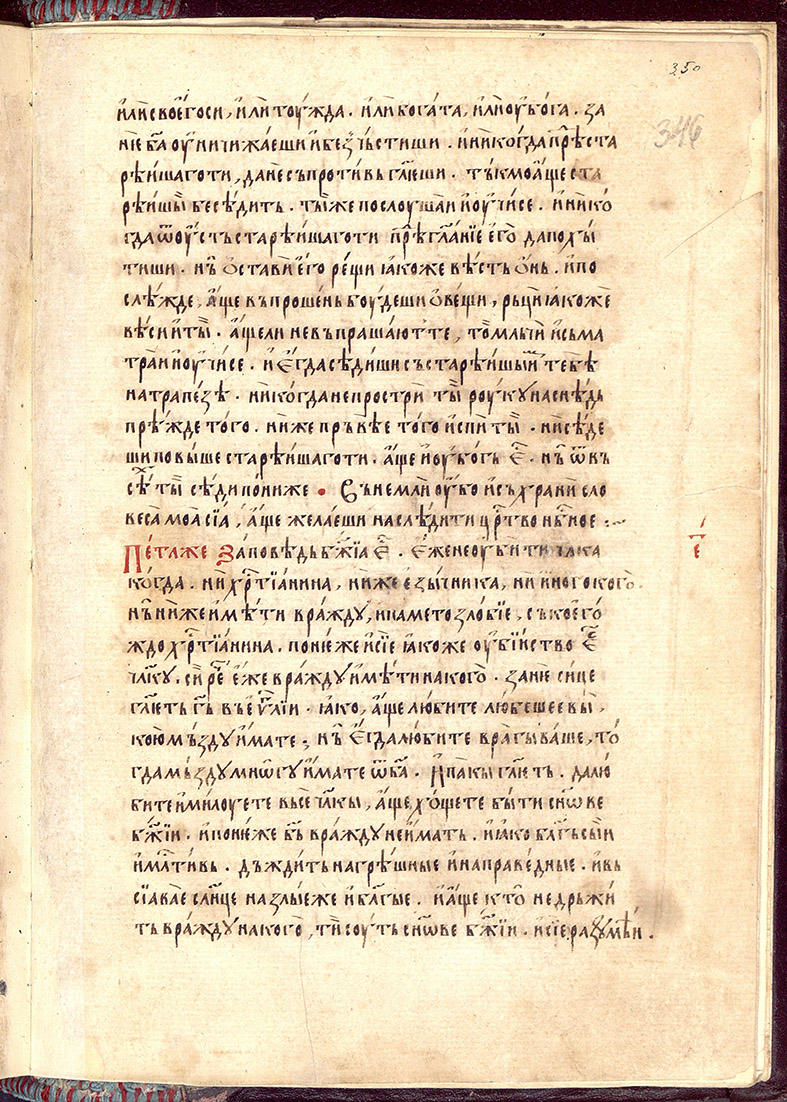 350
346
и҆лѝ своѐго си, и҆лѝ тоу́жда. и҆лѝ бога́та, и҆лѝ оу҆бо́га. за
нѐ ба҃ оу҆ничижа́еши и҆ без̾чьстиши. и҆ нико́гда прѣста
рѣ́ишаго ти, да не съпроти́вь гл҃еши. тъ́кмо а҆́ще ста
рѣ́ишы̏ бесѣ́дить. ты́ же послоу́шаи и҆ оу҆чи́се. и҆ нико́
гда ѿ оу҆́стъ старѣ́ишаго ти прѣгла́нїе є҆го̀ да похы́
тиши. нь̏ ѻ҆ста́ви є҆го̀ рещи ꙗ҆коже вѣ́сть ѻ҆́нь. и҆ по
слѣ́жде, а҆́ще въпроше́нь боу́деши ѻ҆ ве́щи, рьци̏ ꙗ҆ко́же
вѣ́си и҆ ты̏. а҆́ще ли не въпраша́ют те, то̀ мльчѝ и҆ съма
тра́и и҆ оу҆чи́се. и҆ є҆гда̀ сѣди́ши съ старѣ́ишыи̏ тебѣ̀
на трапе́зѣ. нико́гда не прострѝ ты̏ роу́кꙋ на снѣ́дь
прѣ́жде того̀. ниже прь́вѣе того̀ и҆спи́ ты̏. ни сѣ́де
ши повы́ше старѣ́ишаго ти. а҆́ще и҆ оу҆бо́гь є҆̑. нь̏ ѿ въ
сѣ́х ты̏ сѣ́ди пони́же • Съне́мли оу҆̀бо и҆ съхранѝ сло
веса̀ моа̀ сїа̀, а҆́ще жела́еши наслѣ́дити цр҃тво нб҃ное :~
Пе́таже За́повѣдь бж҃їа є҆̑. є҆́же не оу҆би́ти чл҃ка
ко́гда. ни хрⷭ҇тїа́нина, ни́же є҆зы́чника, ни и҆но́го ко́го.
нь̏ ни́же и҆мѣ́ти вра́ждꙋ, и҆ памето зло́бїе, съ кое́го
ждо хрⷭ҇тїа́нина. поне́же и҆ сїѐ ꙗ҆́коже оу҆бі́иство є҆̑
чл҃кꙋ. си́рⷱ҇е є҆́же вра́ждꙋ и҆мѣ́ти на ко́го. занѐ си́це
гл҃еть гь҃ въ е҆ѵⷢ҇лїи. ꙗ҆́ко, а҆́ще лю́бите любе́щее вы̏,
ко́ю мъ́здꙋ и҆́мате; нь̏ є҆гда̀ лю́бите врагы̀ ва́ше, то́
гда мъ́здꙋ мнѡ́гꙋ и҆́мате ѿ ба҃. И҆ па́кы гл҃еть. да лю́
бите и҆ ми́лоуете въсѐ чл҃кы, а҆́ще хо́щете бы́ти сн҃ѡве
бж҃їи. и҆ поне́же бь҃ вра́ждꙋ не и҆́мать. и҆ ꙗ҆́ко бл҃гь сы́и
и҆ млⷭ҇тивь. дъжди́ть на грѣ́шные и҆ на пра́ведные. и҆ въ
сїава́е сл҃нце на злы́е же и҆ бл҃гы́е. и҆ а҆́ще кто̀ не дрьжи́
ть вра́ждꙋ на ко́го, ти́и соу́ть сн҃ѡве бж҃їи. и҆ сїѐ разꙋмѣ́и.
є҃